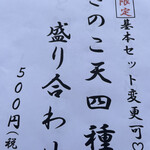 限定
基本セット変更可♡
きのこ天四種
盛り合わせ
500円(税